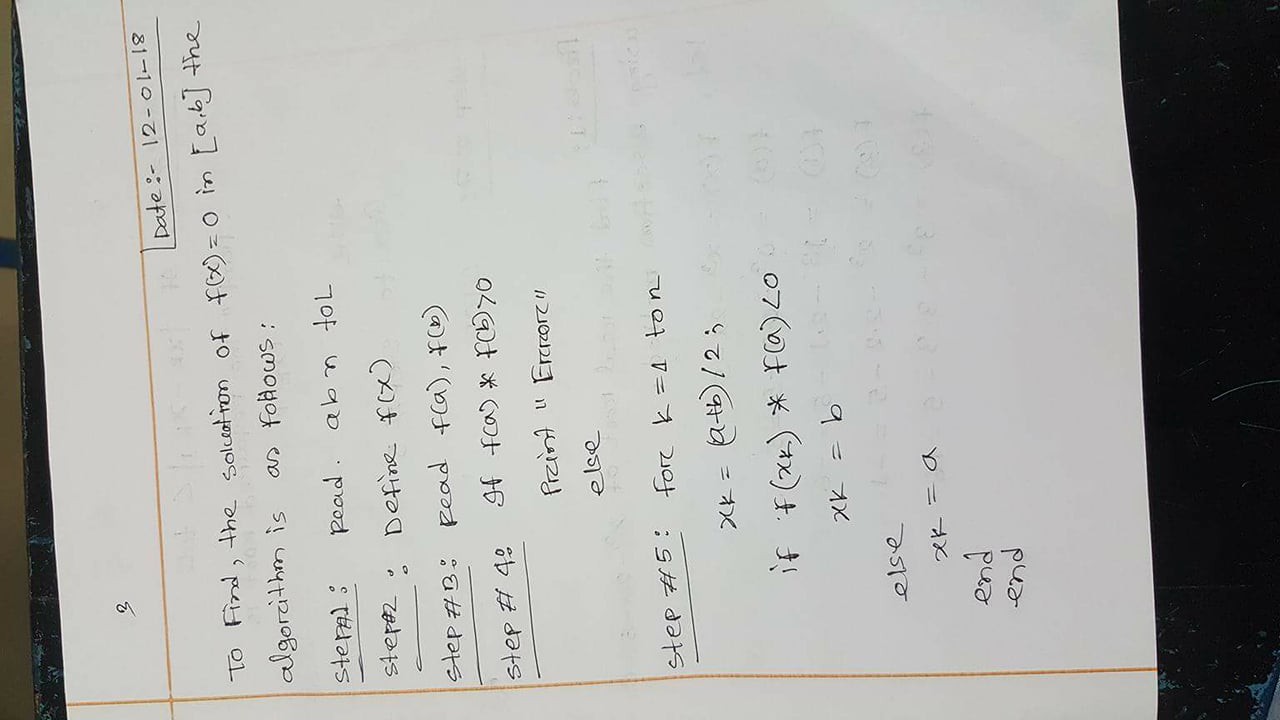 3
Date:- 12-01-18
To Find, the solution of f(x)=0 in [a,b] the
algorithm is as follows:
step#1: Read. a b n toL
step#2: Define f(x)
step #3: Read f(a), f(b)
step # 4: If f(a) * f(b)>0
Print "Error"
else
step #5: for k = 1 to n
xk = (a+b)/2;
if f(xk) * f(a)<0
xk = b
else
xk = a
end
end